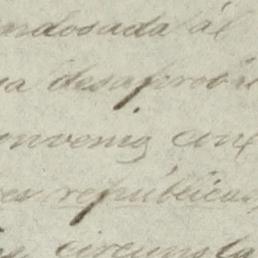 ndosada al
a desaprob
nveng
res republicas
circunsta